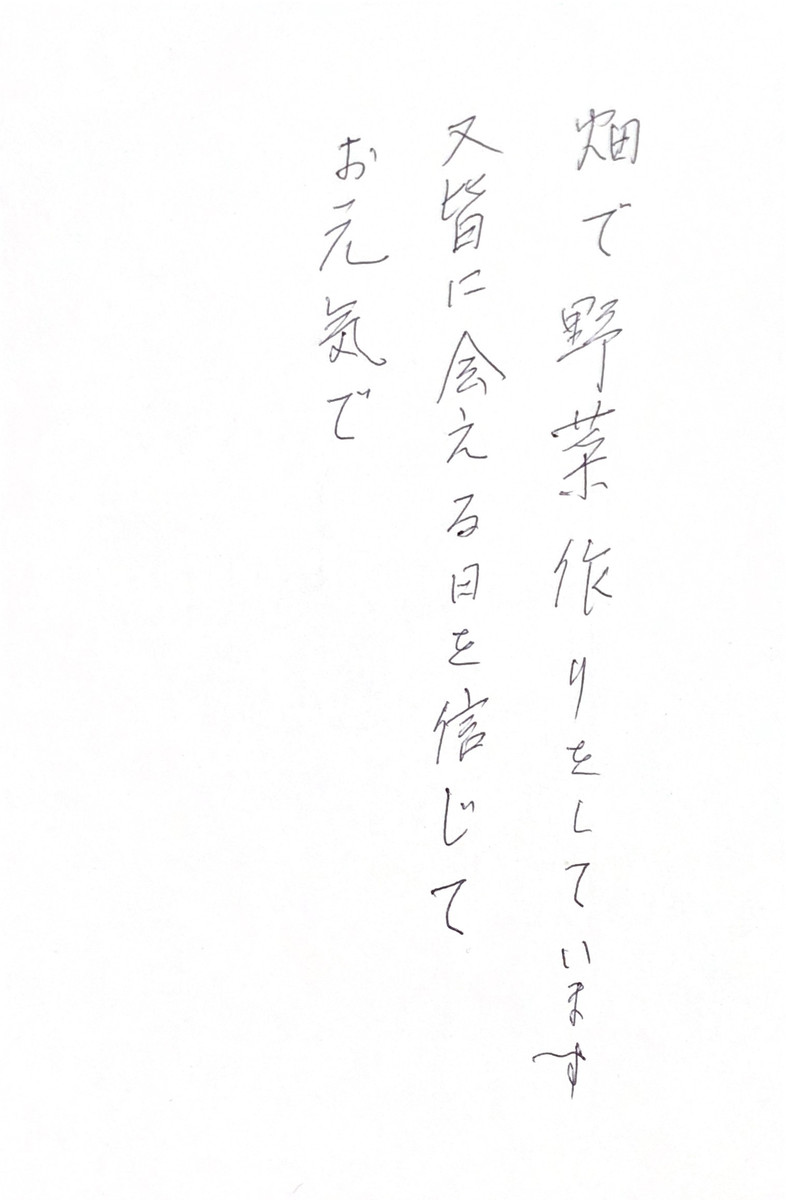 畑で野菜作りをしています
又皆に会える日を信じて
お元気で